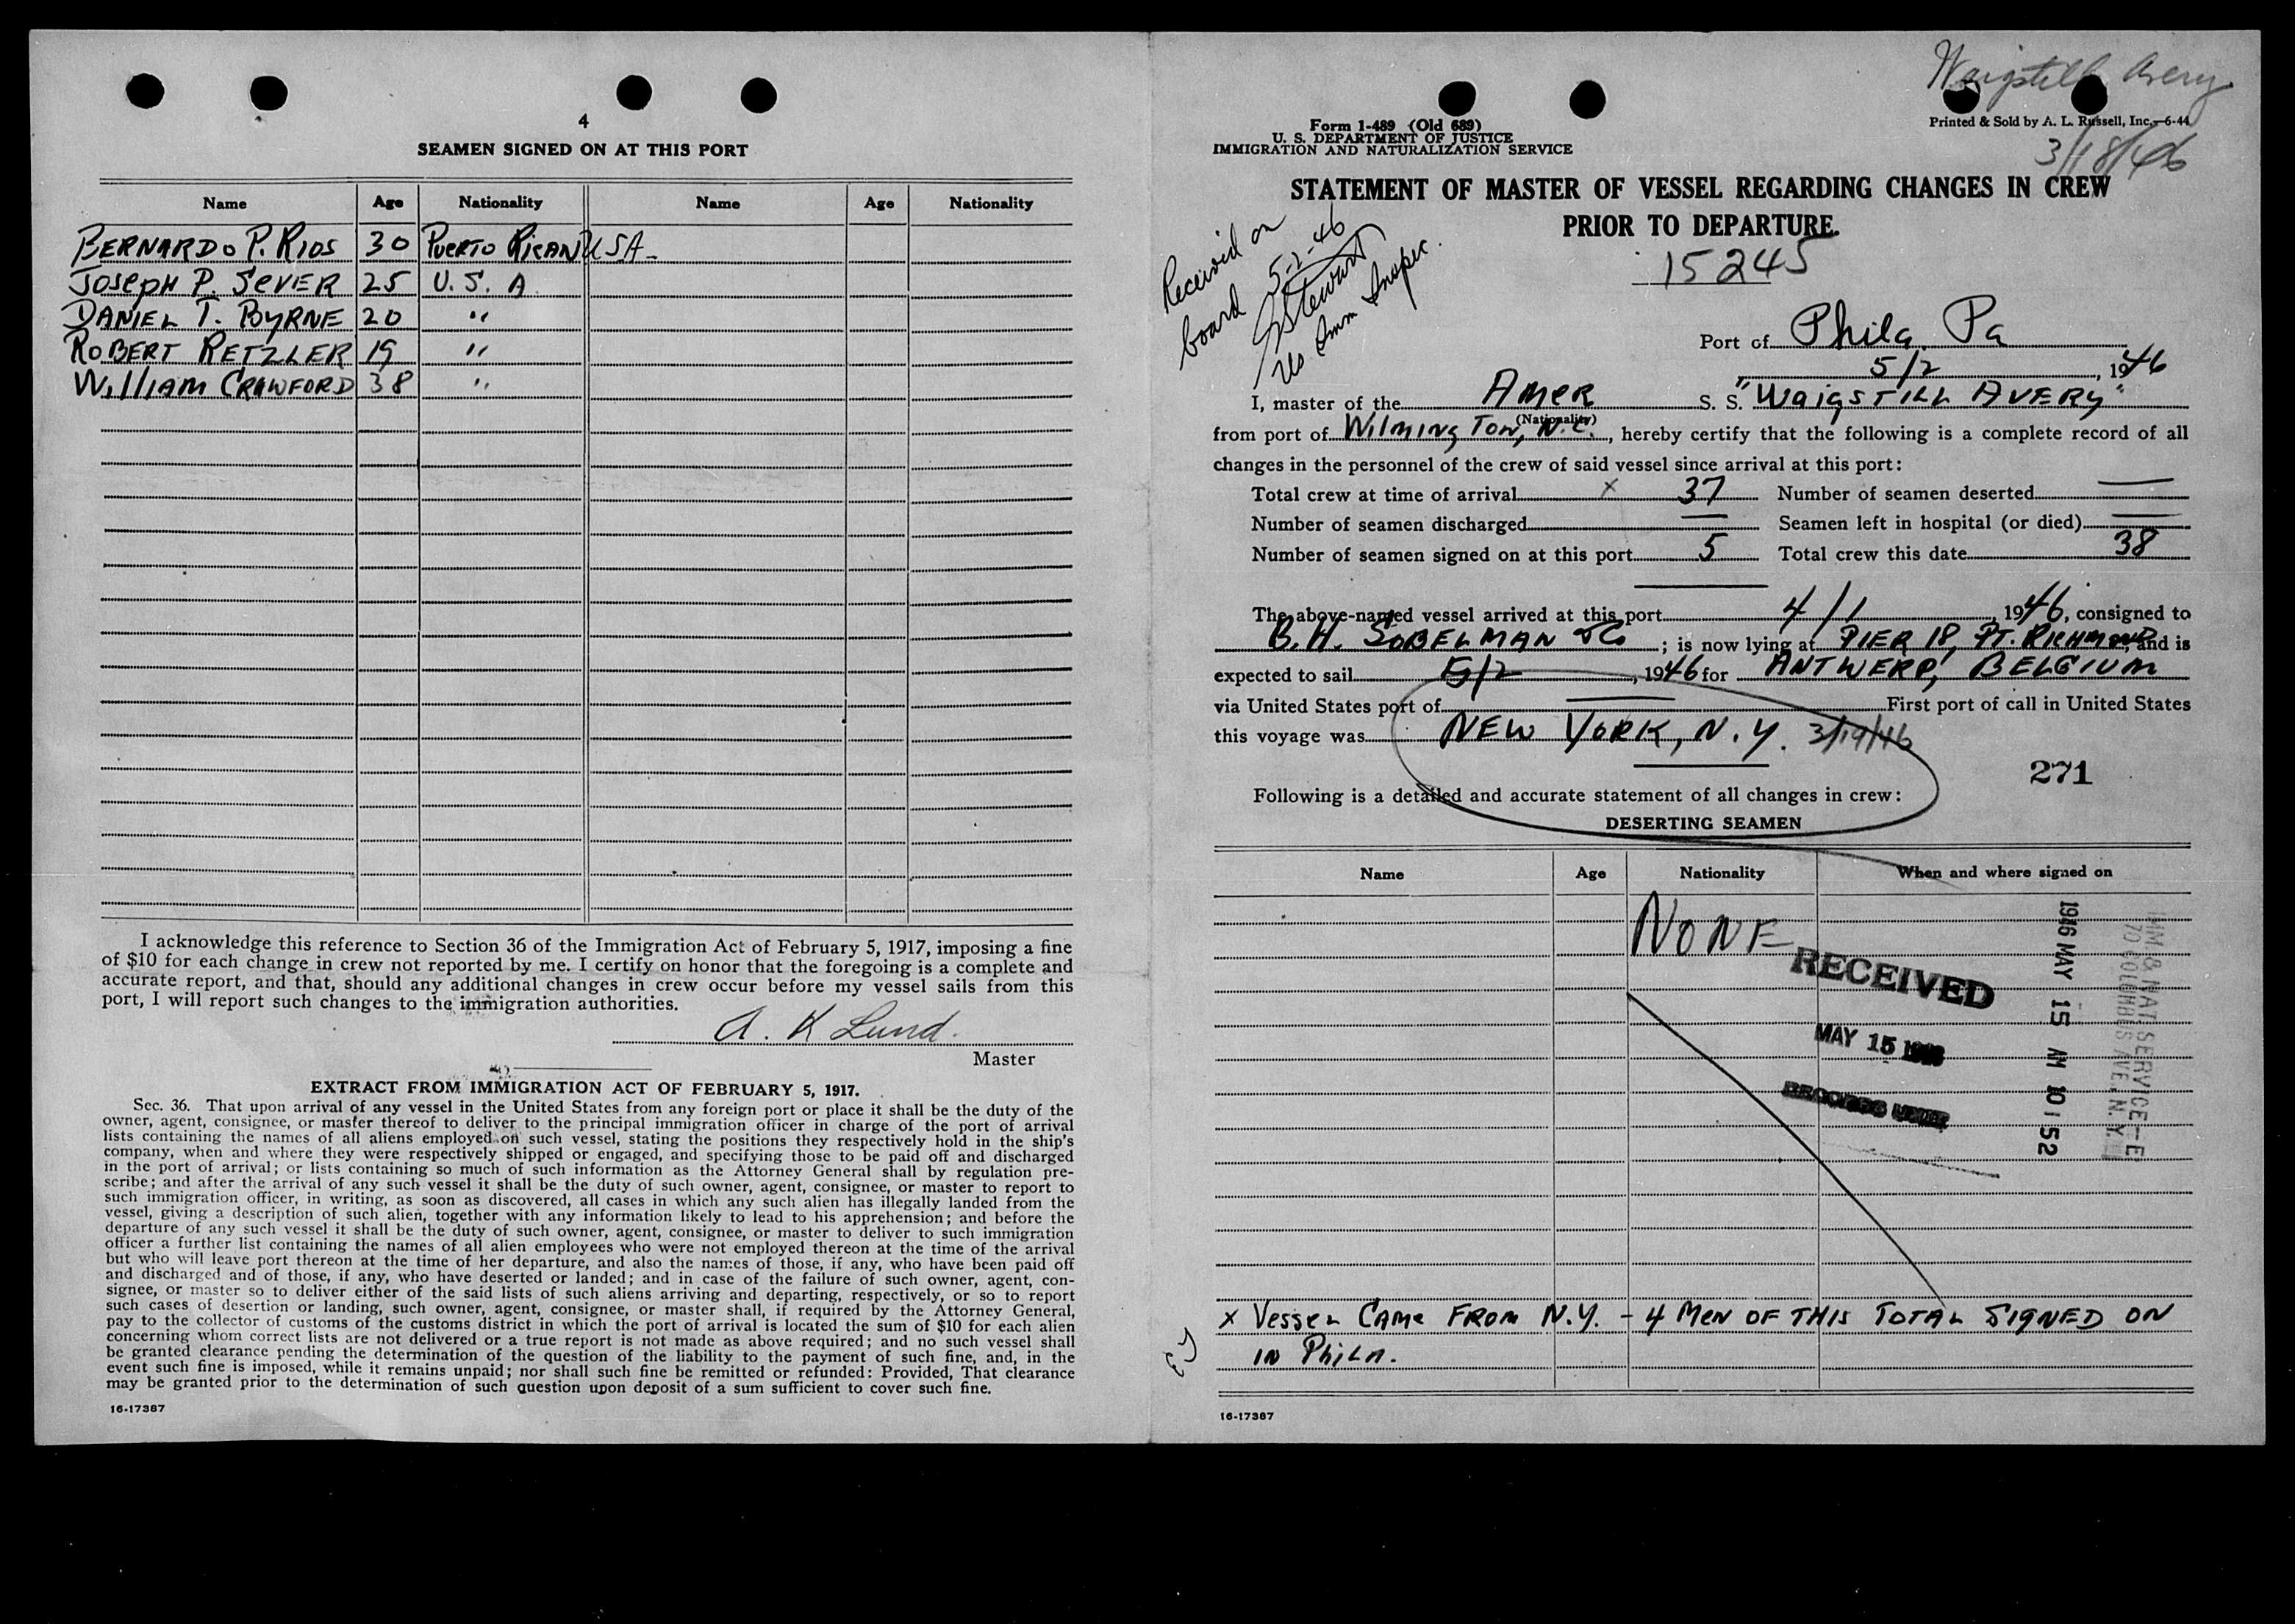 4
SEAMEN SIGNED ON AT THIS PORT
Name Age Nationality Name Age Nationality
BERNARDO P. RIOS 30 PUERTO RICAN USA
JOSEPH P. SEVER 25 U.S.A
DANIEL T. BYRNE 20 "
ROBERT RETZLER 19 "
WILLIAM CRAWFORD 38 "
I acknowledge this reference to Section 36 of the Immigration Act of February 5, 1917, imposing a fine
of $10 for each change in crew not reported by me. I certify on honor that the foregoing is a complete and
accurate report, and that, should any additional changes in crew occur before my vessel sails from this
port, I will report such changes to the immigration authorities.
A. K Lund.
Master
EXTRACT FROM IMMIGRATION ACT OF FEBRUARY 5, 1917.
Sec. 36. That upon arrival of any vessel in the United States from any foreign port or place it shall be the duty of the
owner, agent, consignee, or master thereof to deliver to the principal immigration officer in charge of the port of arrival
lists containing the names of all aliens employed on such vessel, stating the positions they respectively hold in the ship's
company, when and where they were respectively shipped or engaged, and specifying those to be paid off and discharged
in the port of arrival; or lists containing so much of such information as the Attorney General shall by regulation pre-
scribe; and after the arrival of any such vessel it shall be the duty of such owner, agent, consignee, or master to report to
such immigration officer, in writing, as soon as discovered, all cases in which any such alien has illegally landed from the
vessel, giving a description of such alien, together with any information likely to lead to his apprehension; and before the
departure of any such vessel it shall be the duty of such owner, agent, consignee, or master to deliver to such immigration
officer a further list containing the names of all alien employees who were not employed thereon at the time of the arrival
but who will leave port thereon at the time of her departure, and also the names of those, if any, who have been paid off
and discharged and of those, if any, who have deserted or landed; and in case of the failure of such owner, agent, con-
signee, or master so to deliver either of the said lists of such aliens arriving and departing, respectively, or so to report
such cases of desertion or landing, such owner, agent, consignee, or master shall, if required by the Attorney General,
pay to the collector of customs of the customs district in which the port of arrival is located the sum of $10 for each alien
concerning whom correct lists are not delivered or a true report is not made as above required; and no such vessel shall
be granted clearance pending the determination of the question of the liability to the payment of such fine, and, in the
event such fine is imposed, while it remains unpaid; nor shall such fine be remitted or refunded: Provided, That clearance
may be granted prior to the determination of such question upon deposit of a sum sufficient to cover such fine.
16-17387
Waigstill Avery
Form 1-489 (Old 689)
U. S. DEPARTMENT OF JUSTICE
IMMIGRATION AND NATURALIZATION SERVICE
Printed & Sold by A. L. Russell, Inc.—6-44
3/18/46
STATEMENT OF MASTER OF VESSEL REGARDING CHANGES IN CREW
PRIOR TO DEPARTURE.
15245
Received on
board 5-2-46
Stewart
US Imm Inspec.
Port of Phila, Pa
5/2, 1946
I, master of the AMER S. S. "WAIGSTILL AVERY"
(Nationality)
from port of WILMINGTON, N.C., hereby certify that the following is a complete record of all
changes in the personnel of the crew of said vessel since arrival at this port:
Total crew at time of arrival x 37 Number of seamen deserted —
Number of seamen discharged — Seamen left in hospital (or died) —
Number of seamen signed on at this port 5 Total crew this date 38
The above-named vessel arrived at this port 4/1, 1946, consigned to
B.H. SOBELMAN & Co; is now lying at PIER 18, PT. RICHMOND, and is
expected to sail 5/2, 1946 for ANTWERP, BELGIUM
via United States port of — First port of call in United States
this voyage was NEW YORK, N.Y. 3/19/46
271
Following is a detailed and accurate statement of all changes in crew:
DESERTING SEAMEN
Name Age Nationality When and where signed on
NONE
RECEIVED
MAY 15 1946
RECORDS UNIT
1946 MAY 15 AM 10 52
IMM & NAT SERVICE
70 COLUMBUS AVE. N.Y.
x VESSEL CAME FROM N.Y. - 4 MEN OF THIS TOTAL SIGNED ON
IN PHILA.
16-17387